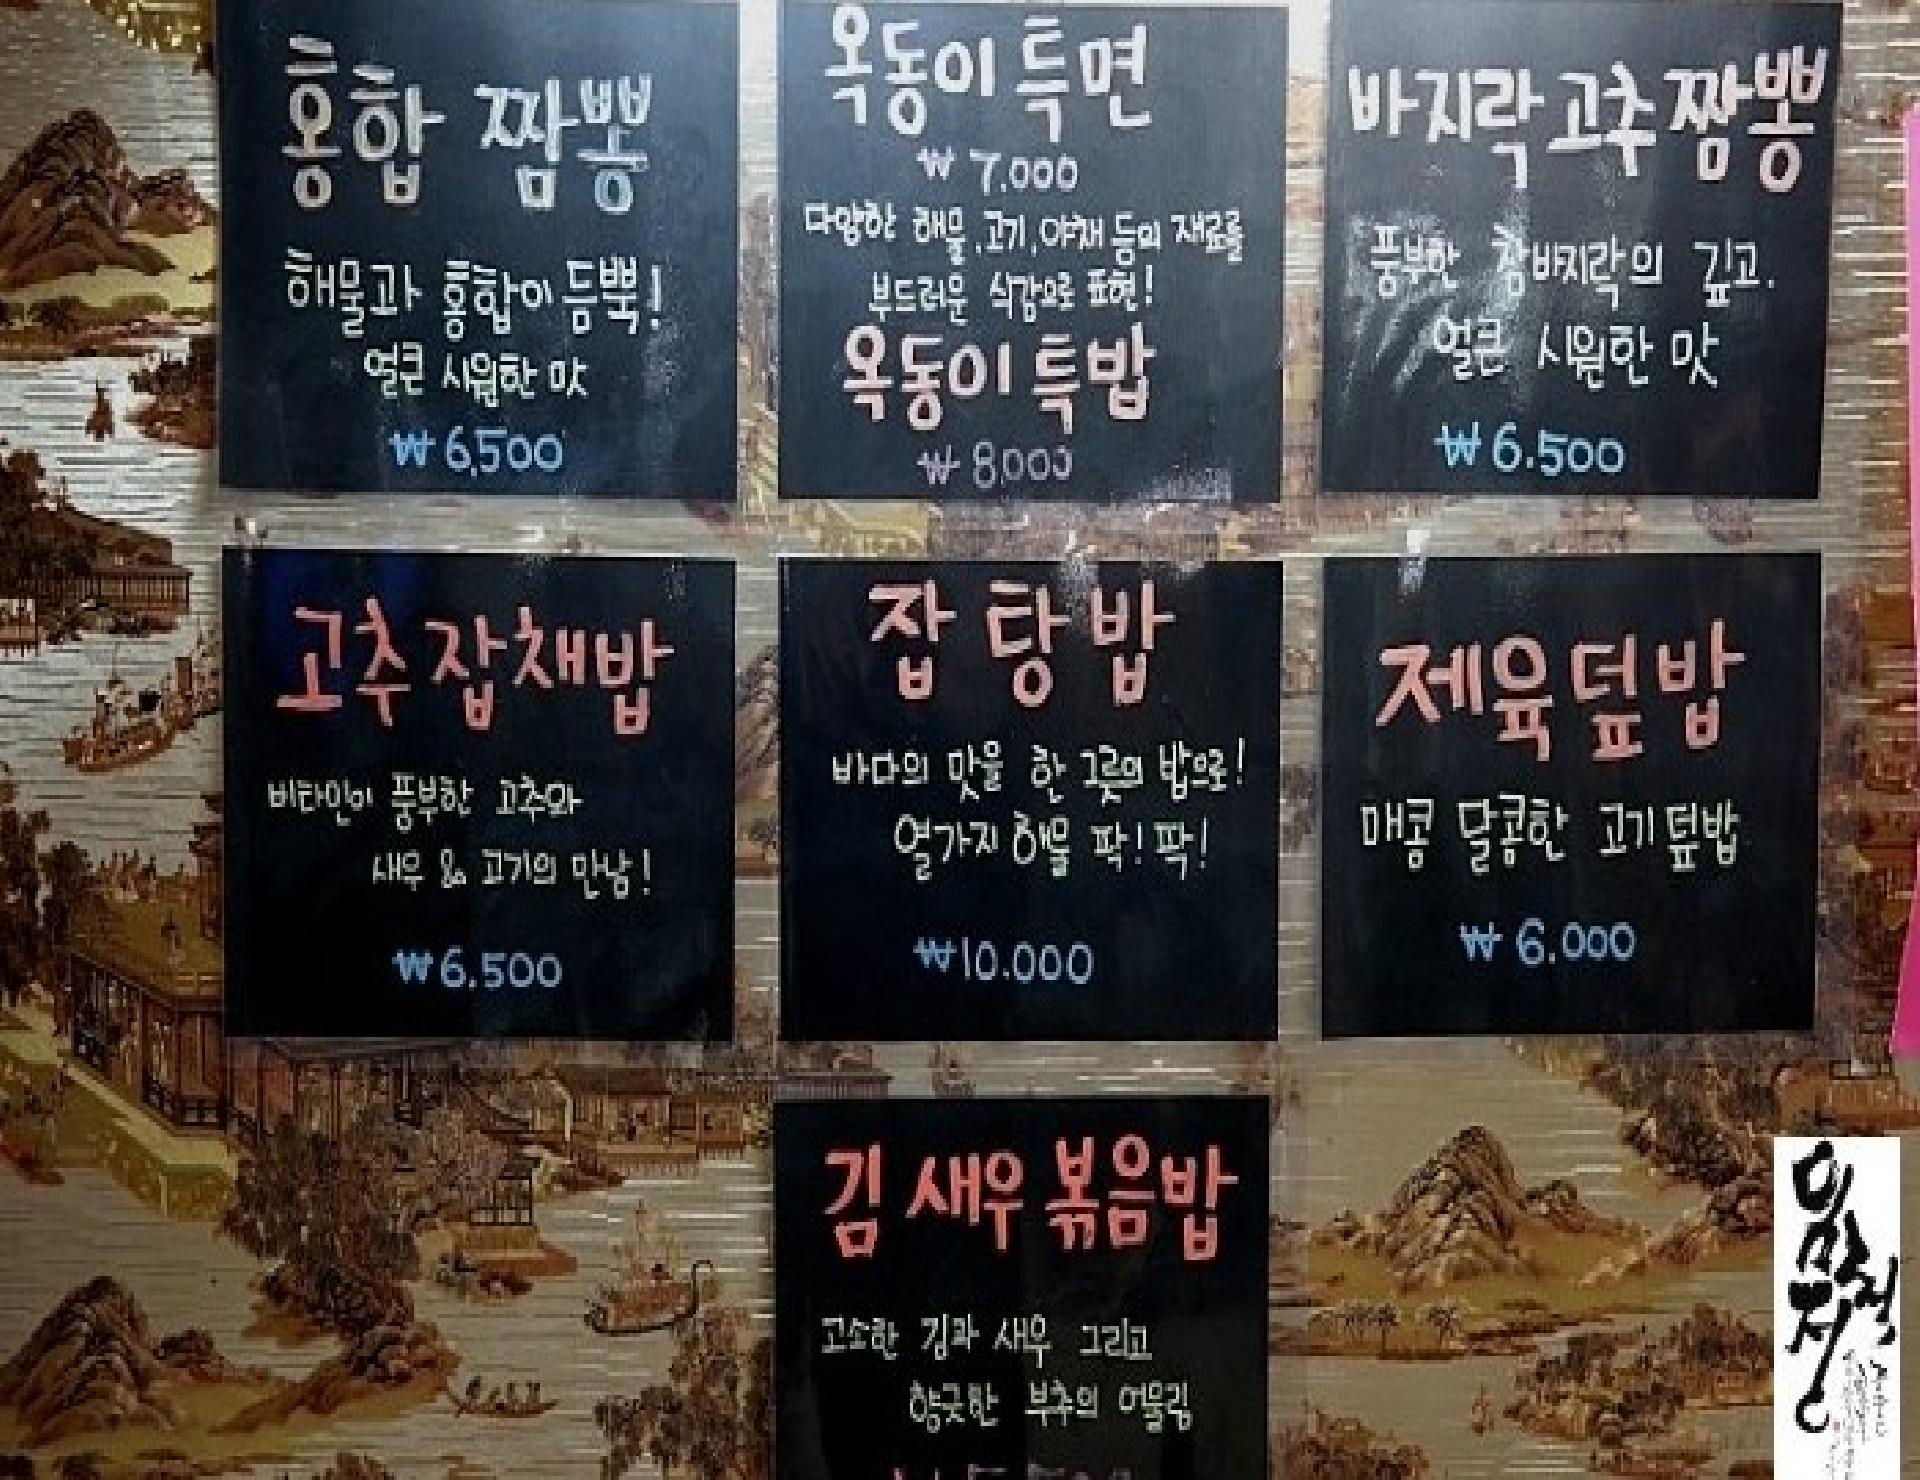 홍합 짬뽕
해물과 홍합이 듬뿍!
얼큰 시원한 맛
₩6,500
옥동이 특면
₩7.000
다양한 해물, 고기, 야채 등의 재료를
부드러운 식감으로 표현!
옥동이 특밥
₩8,000
바지락 고추 짬뽕
풍부한 참바지락의 깊고.
얼큰 시원한 맛
₩6.500
고추잡채밥
비타민이 풍부한 고추와
새우 & 고기의 만남!
₩6.500
잡탕밥
바다의 맛을 한 그릇의 밥으로!
열가지 해물 팍! 팍!
₩10.000
제육덮밥
매콤 달콤한 고기덮밥
₩6.000
김 새우 볶음밥
고소한 김과 새우 그리고
향긋한 부추의 어울림